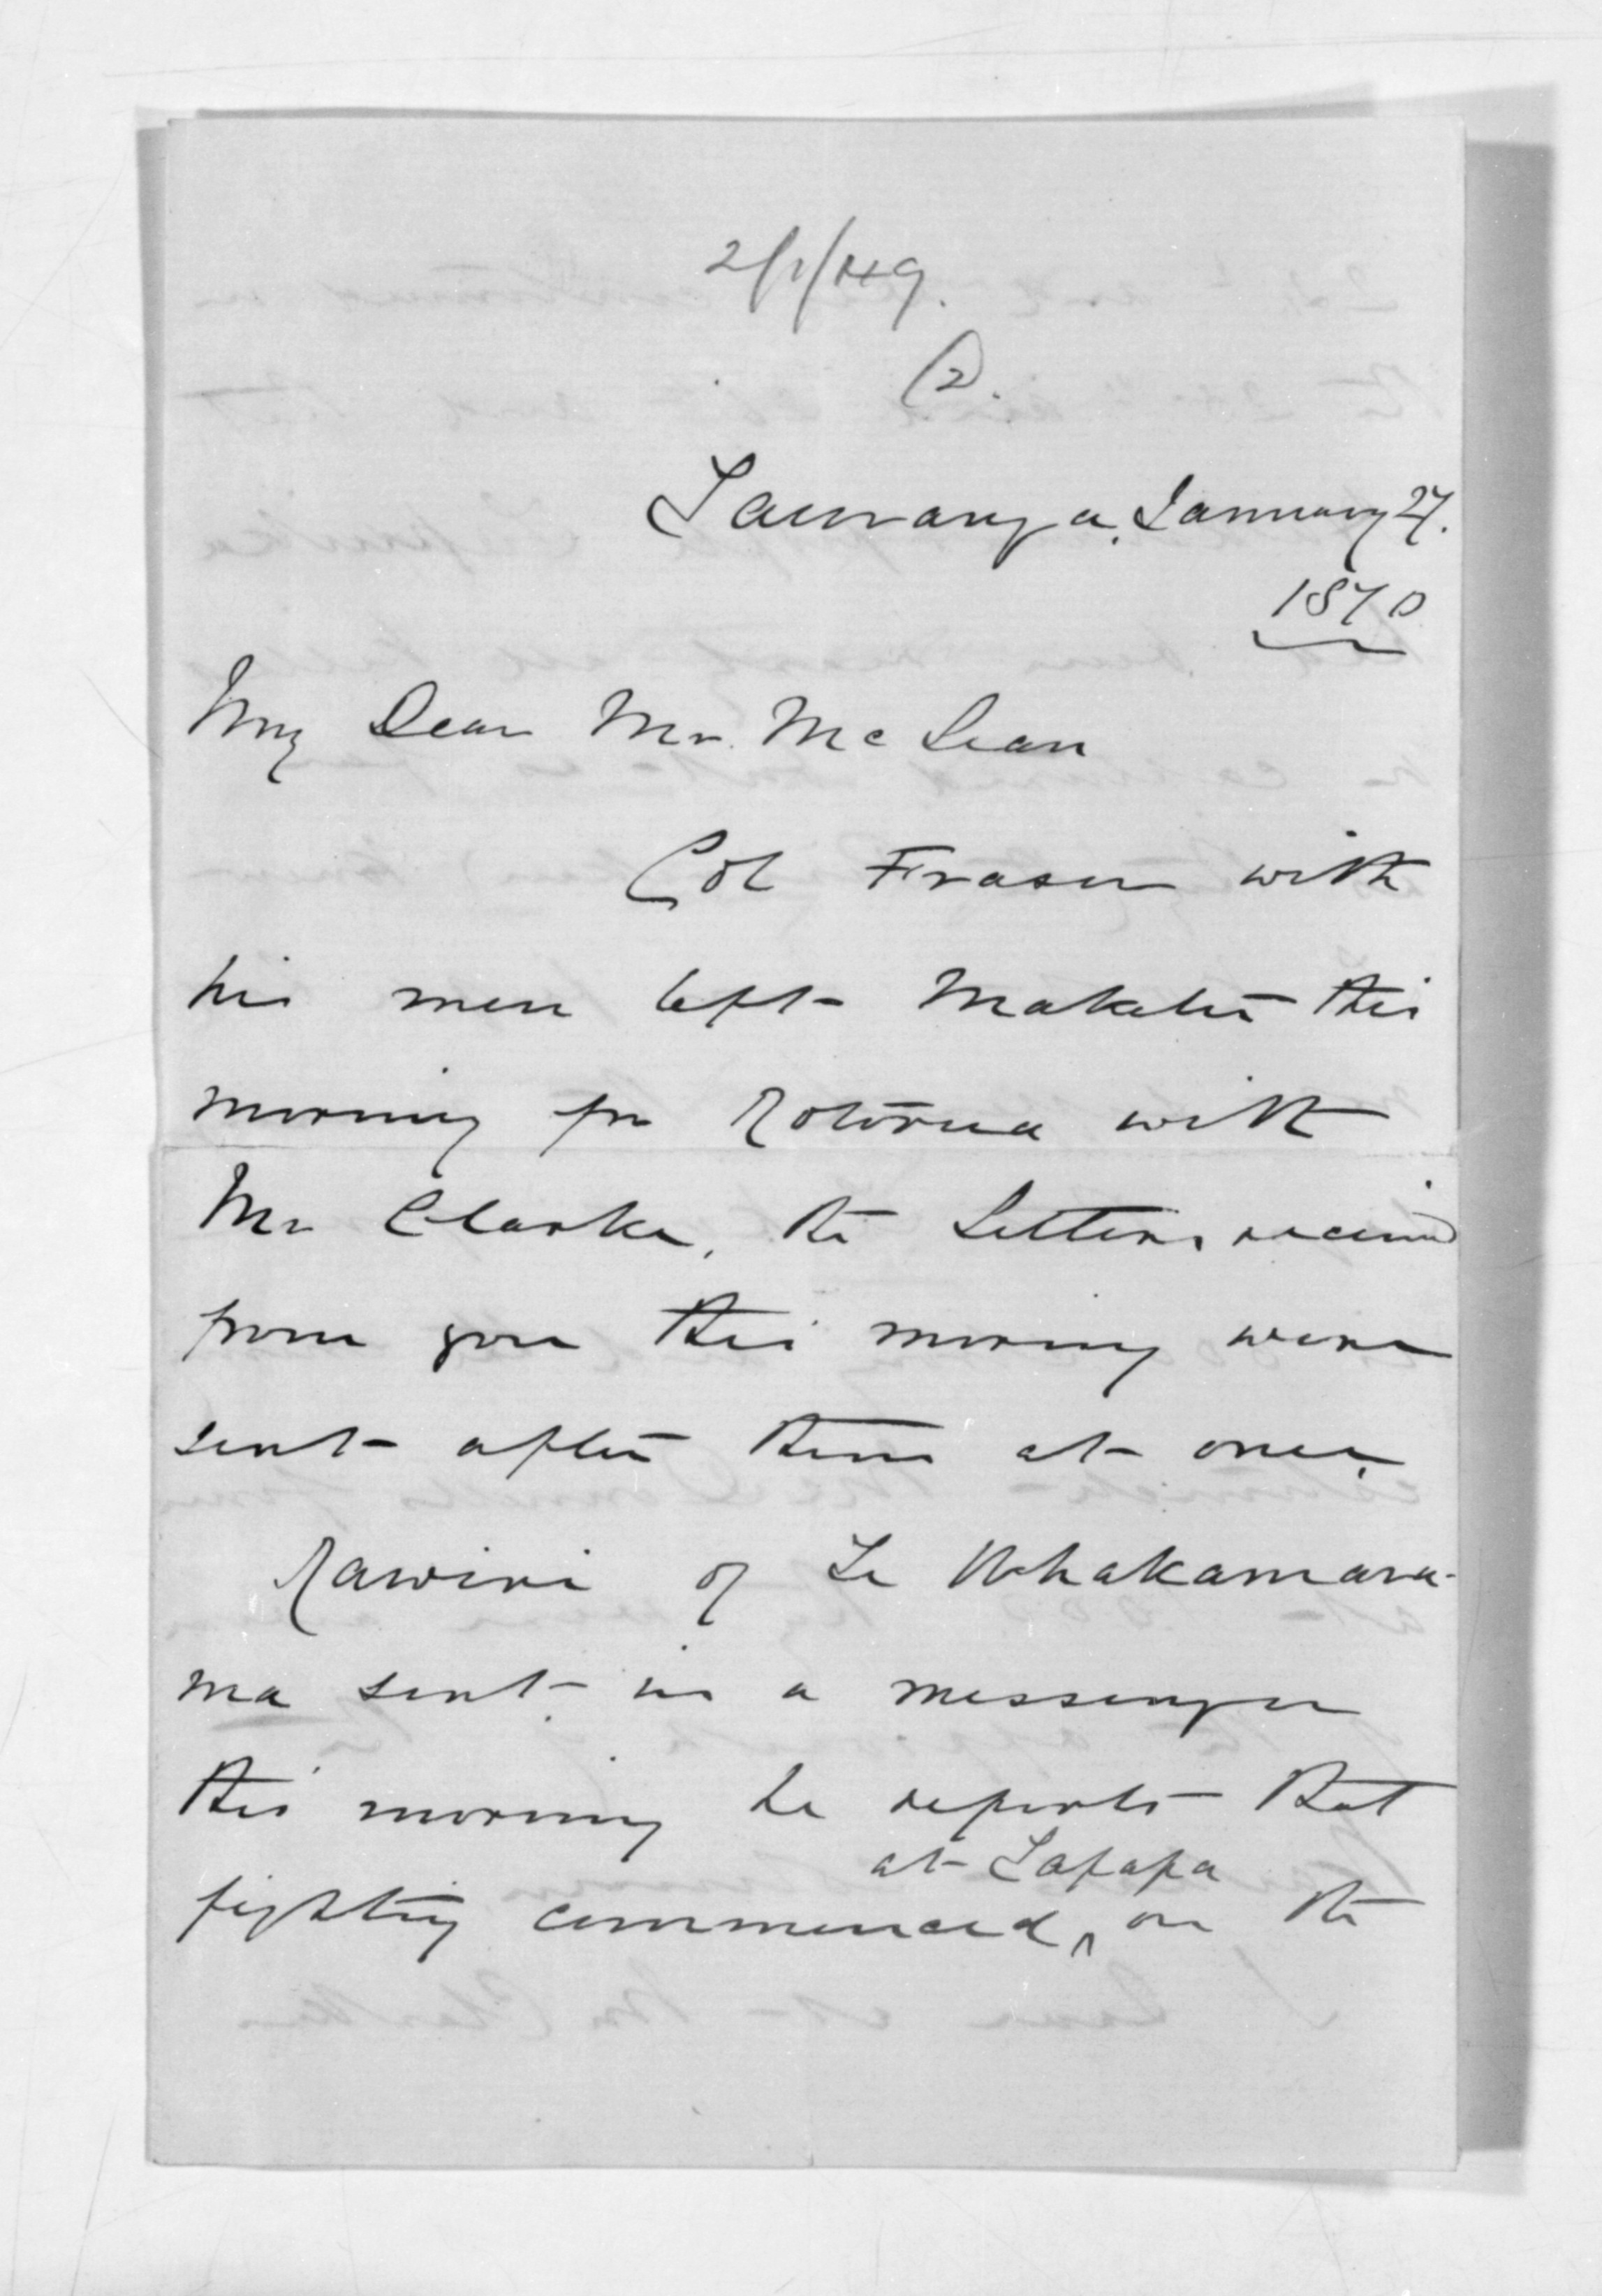 2/1/149.
(2).
Tauranga, January 27.
1870
My Dear Mr. McLean
Col Fraser with
his men left Maketu this
morning for Rotorua with
Mr Clarke, the letters received
from you this morning were
sent after them at once.
Rawiri of Te Whakamara-
ma sent in a messenger
this morning he reports that
at Tapapa
fighting commenced ^ on the